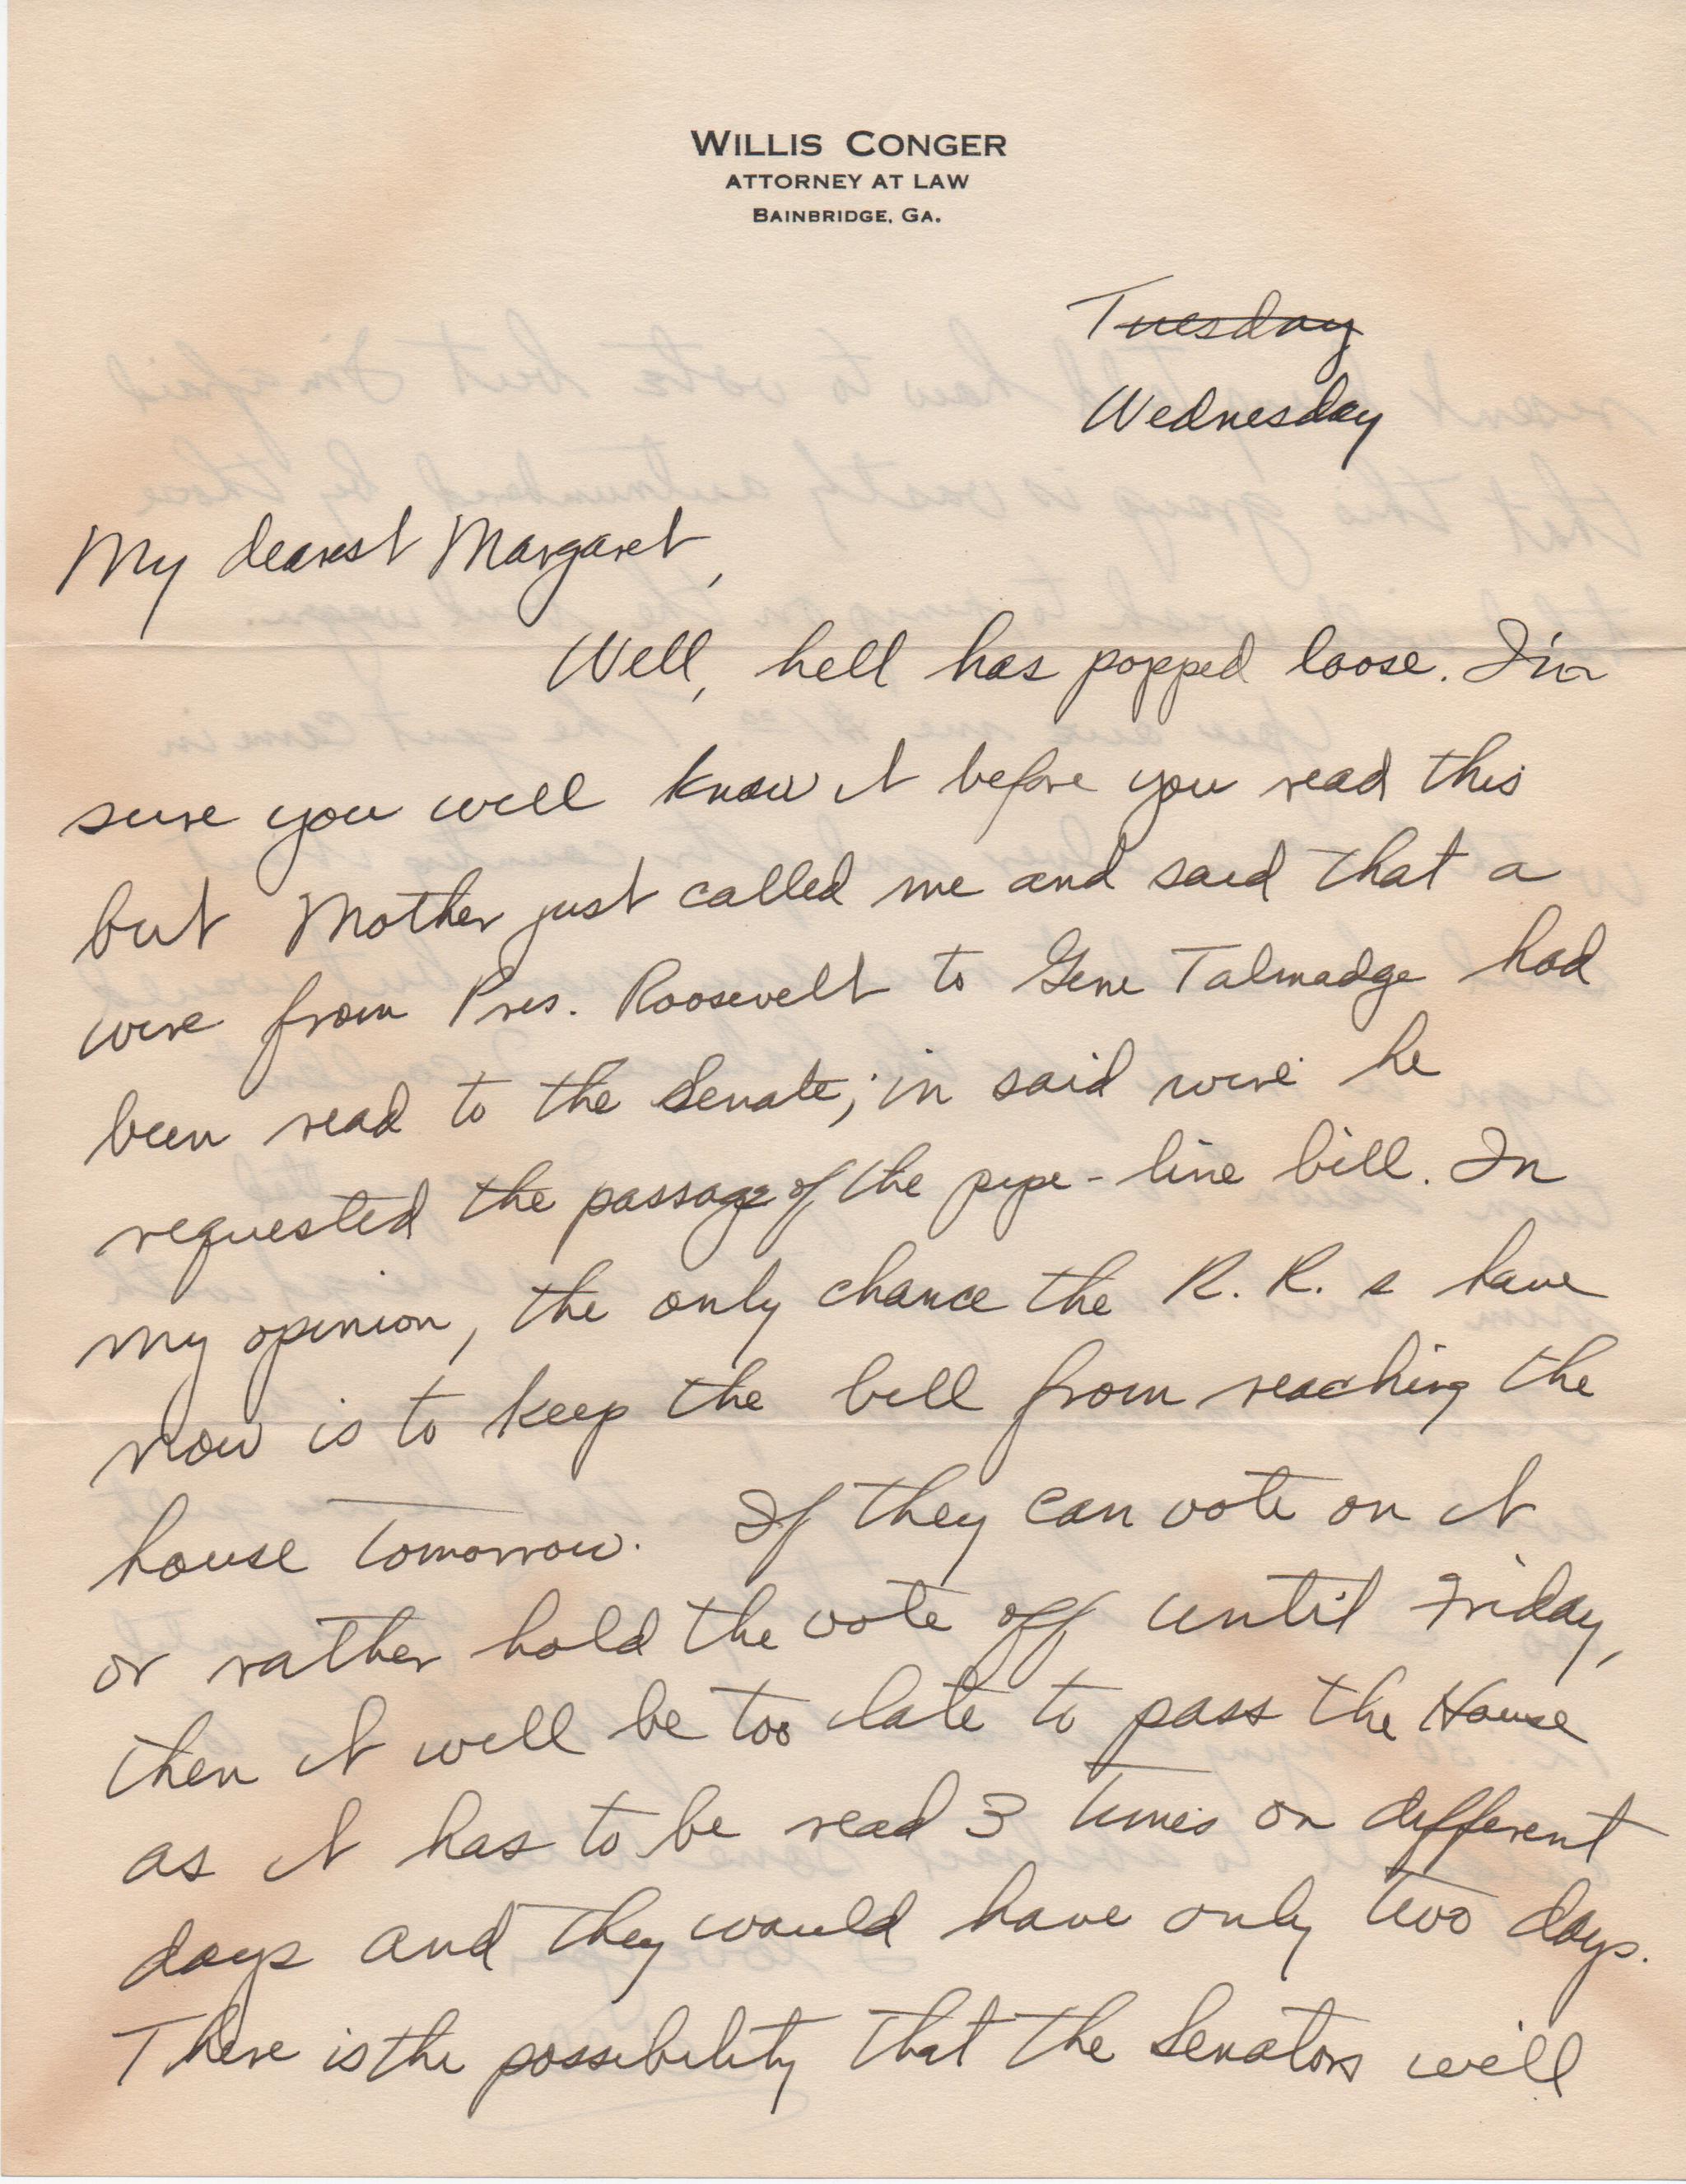 WILLIS CONGER
ATTORNEY AT LAW
BAINBRIDGE, GA.
Tuesday
Wednesday
My dearest Margaret,
Well, hell has popped loose. I'm
sure you will know it before you read this
but Mother just called me and said that a
wire from Pres. Roosevelt to Gene Talmadge had
been read to the Senate; in said wire he
requested the passage of the pipe-line bill. In
my opinion, the only chance the R. R. s have
now is to keep the bill from reaching the
house tomorrow. If they can vote on it
or rather hold the vote off until Friday,
then it will be too late to pass the House
as it has to be read 3 times on different
days and they would have only two days.
There is the possibility that the Senators will